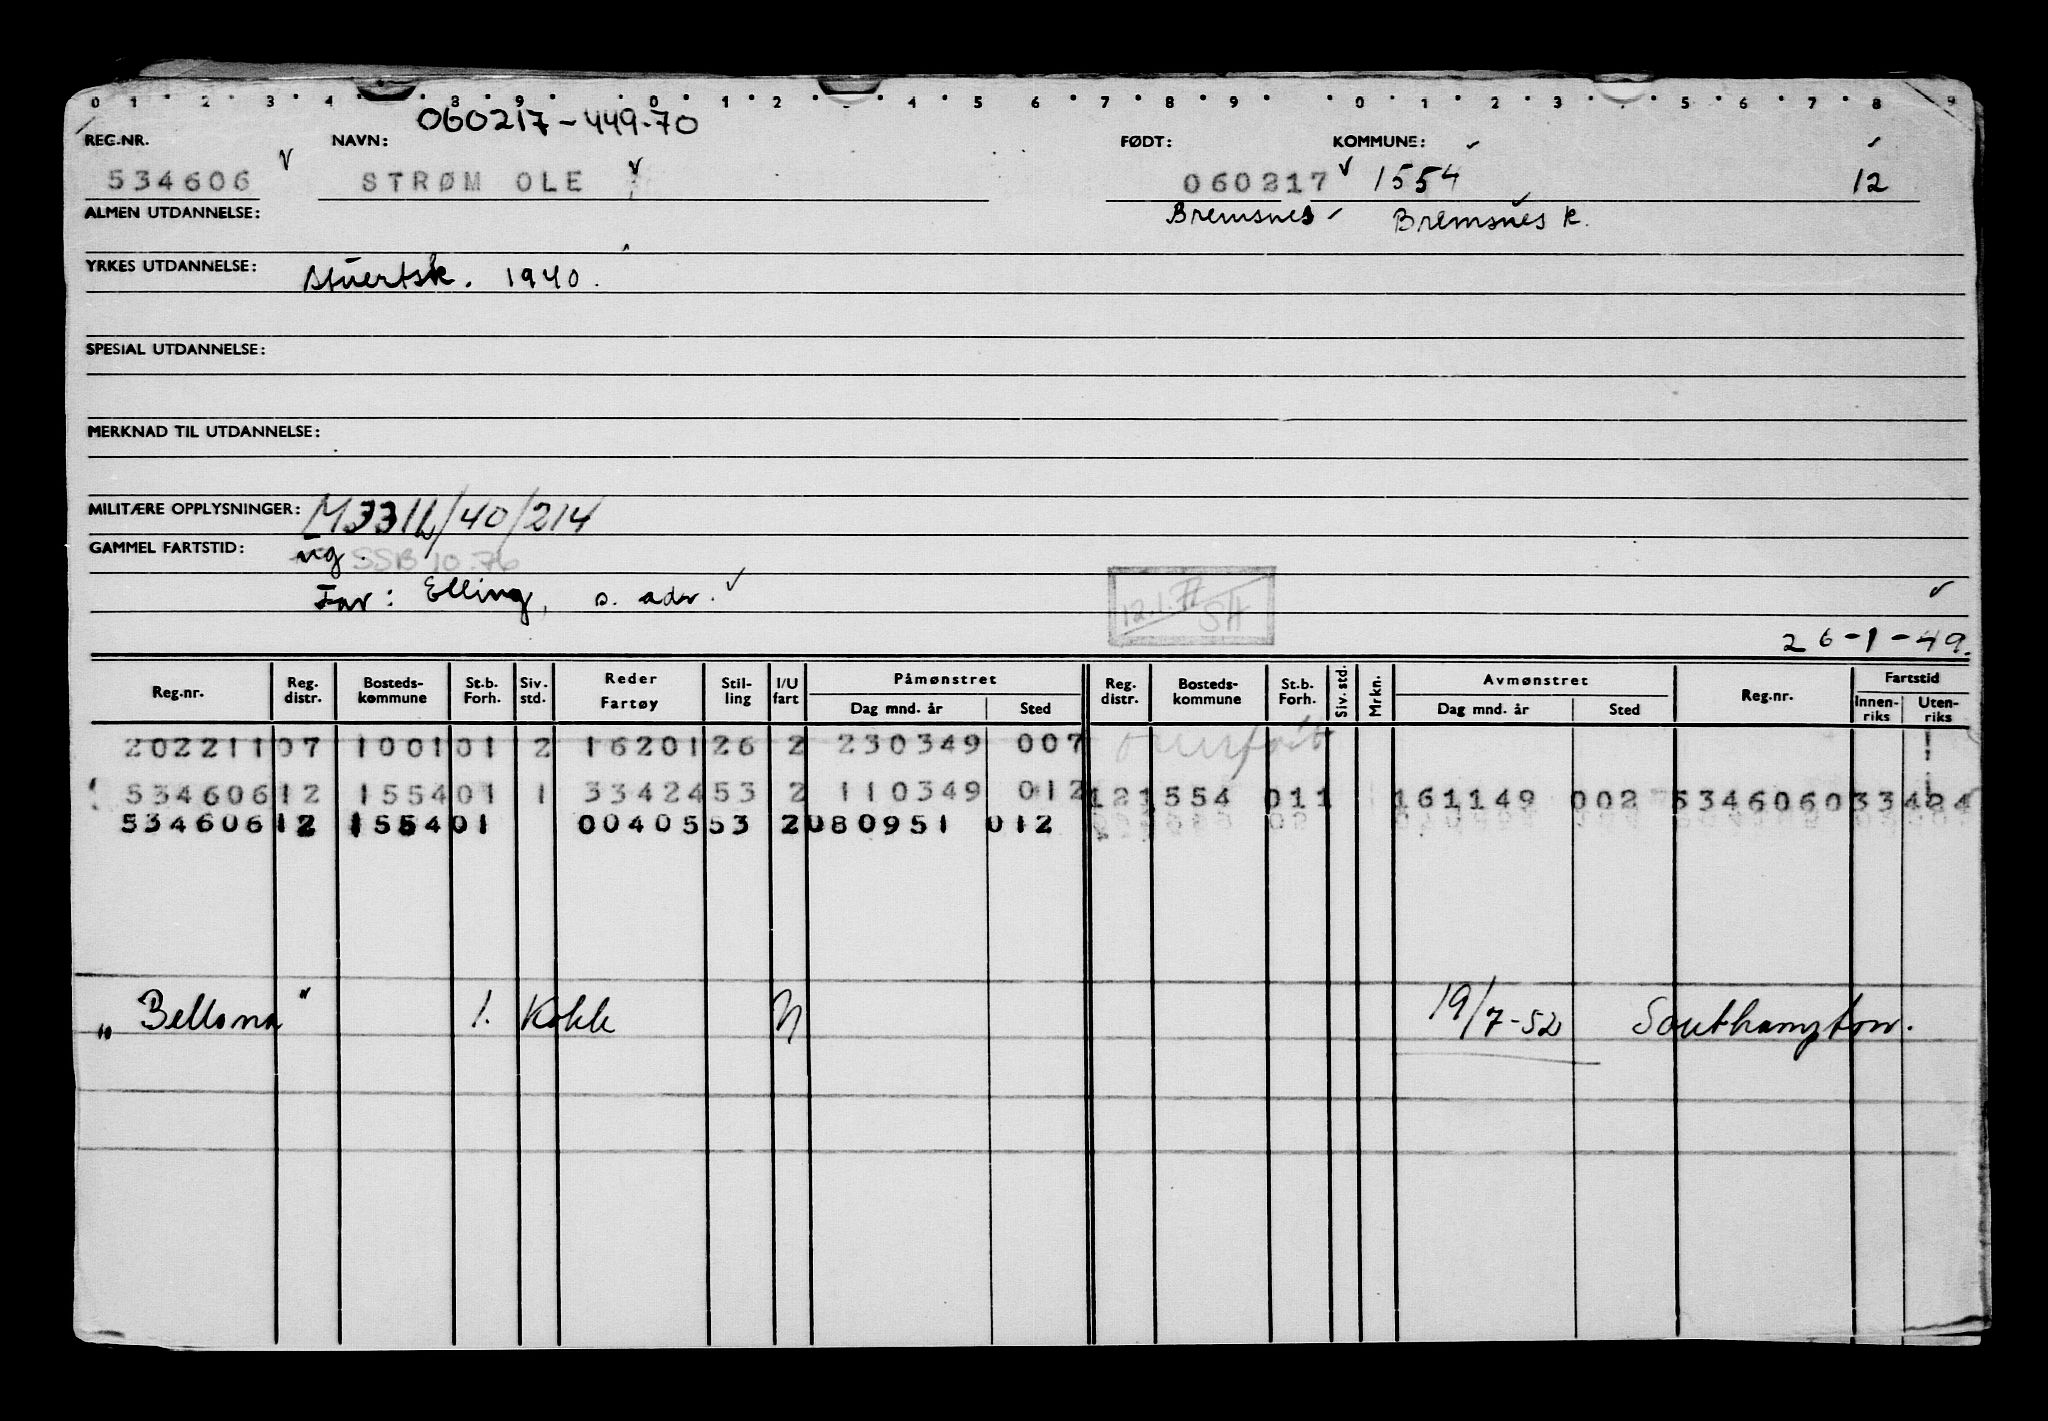 0 1 2 3 4 8 9 0 1 2 4 5 6 7 8 9 0 1 2 3 5 6 7 8 9
060217-449-70
REG.NR. NAVN: FØDT: KOMMUNE:
534606 STRØM OLE 060217 1554 12
ALMEN UTDANNELSE: Bremsnes Bremsnes k.
YRKES UTDANNELSE: Stuertsk. 1940.
SPESIAL UTDANNELSE:
MERKNAD TIL UTDANNELSE:
MILITÆRE OPPLYSNINGER: M.3311/40/214
GAMMEL FARTSTID: ug. SSB 10.76
Far: Elling, s. adr.
12.1.77 SH
26-1-49.
Reg.nr. Reg. distr. Bosteds-kommune St.b. Forh. Siv. std. Reder Fartøy Stil-ling I/U fart Påmønstret Dag mnd. år Sted Reg. distr. Bosteds-kommune St.b. Forh. Siv. std. Mrkn. Avmønstret Dag mnd. år Sted Reg.nr. Fartstid Innen-riks Uten-riks
202211 07 1001 01 2 16201 26 2 230349 007 overført
534606 12 1554 01 1 33424 53 2 110349 012 12 1554 01 1 1 161149 002 534606 033424
534606 12 1554 01 00405 53 2 080951 012
"Bellona" 1. Kokk N 19/7-52 Southampton.